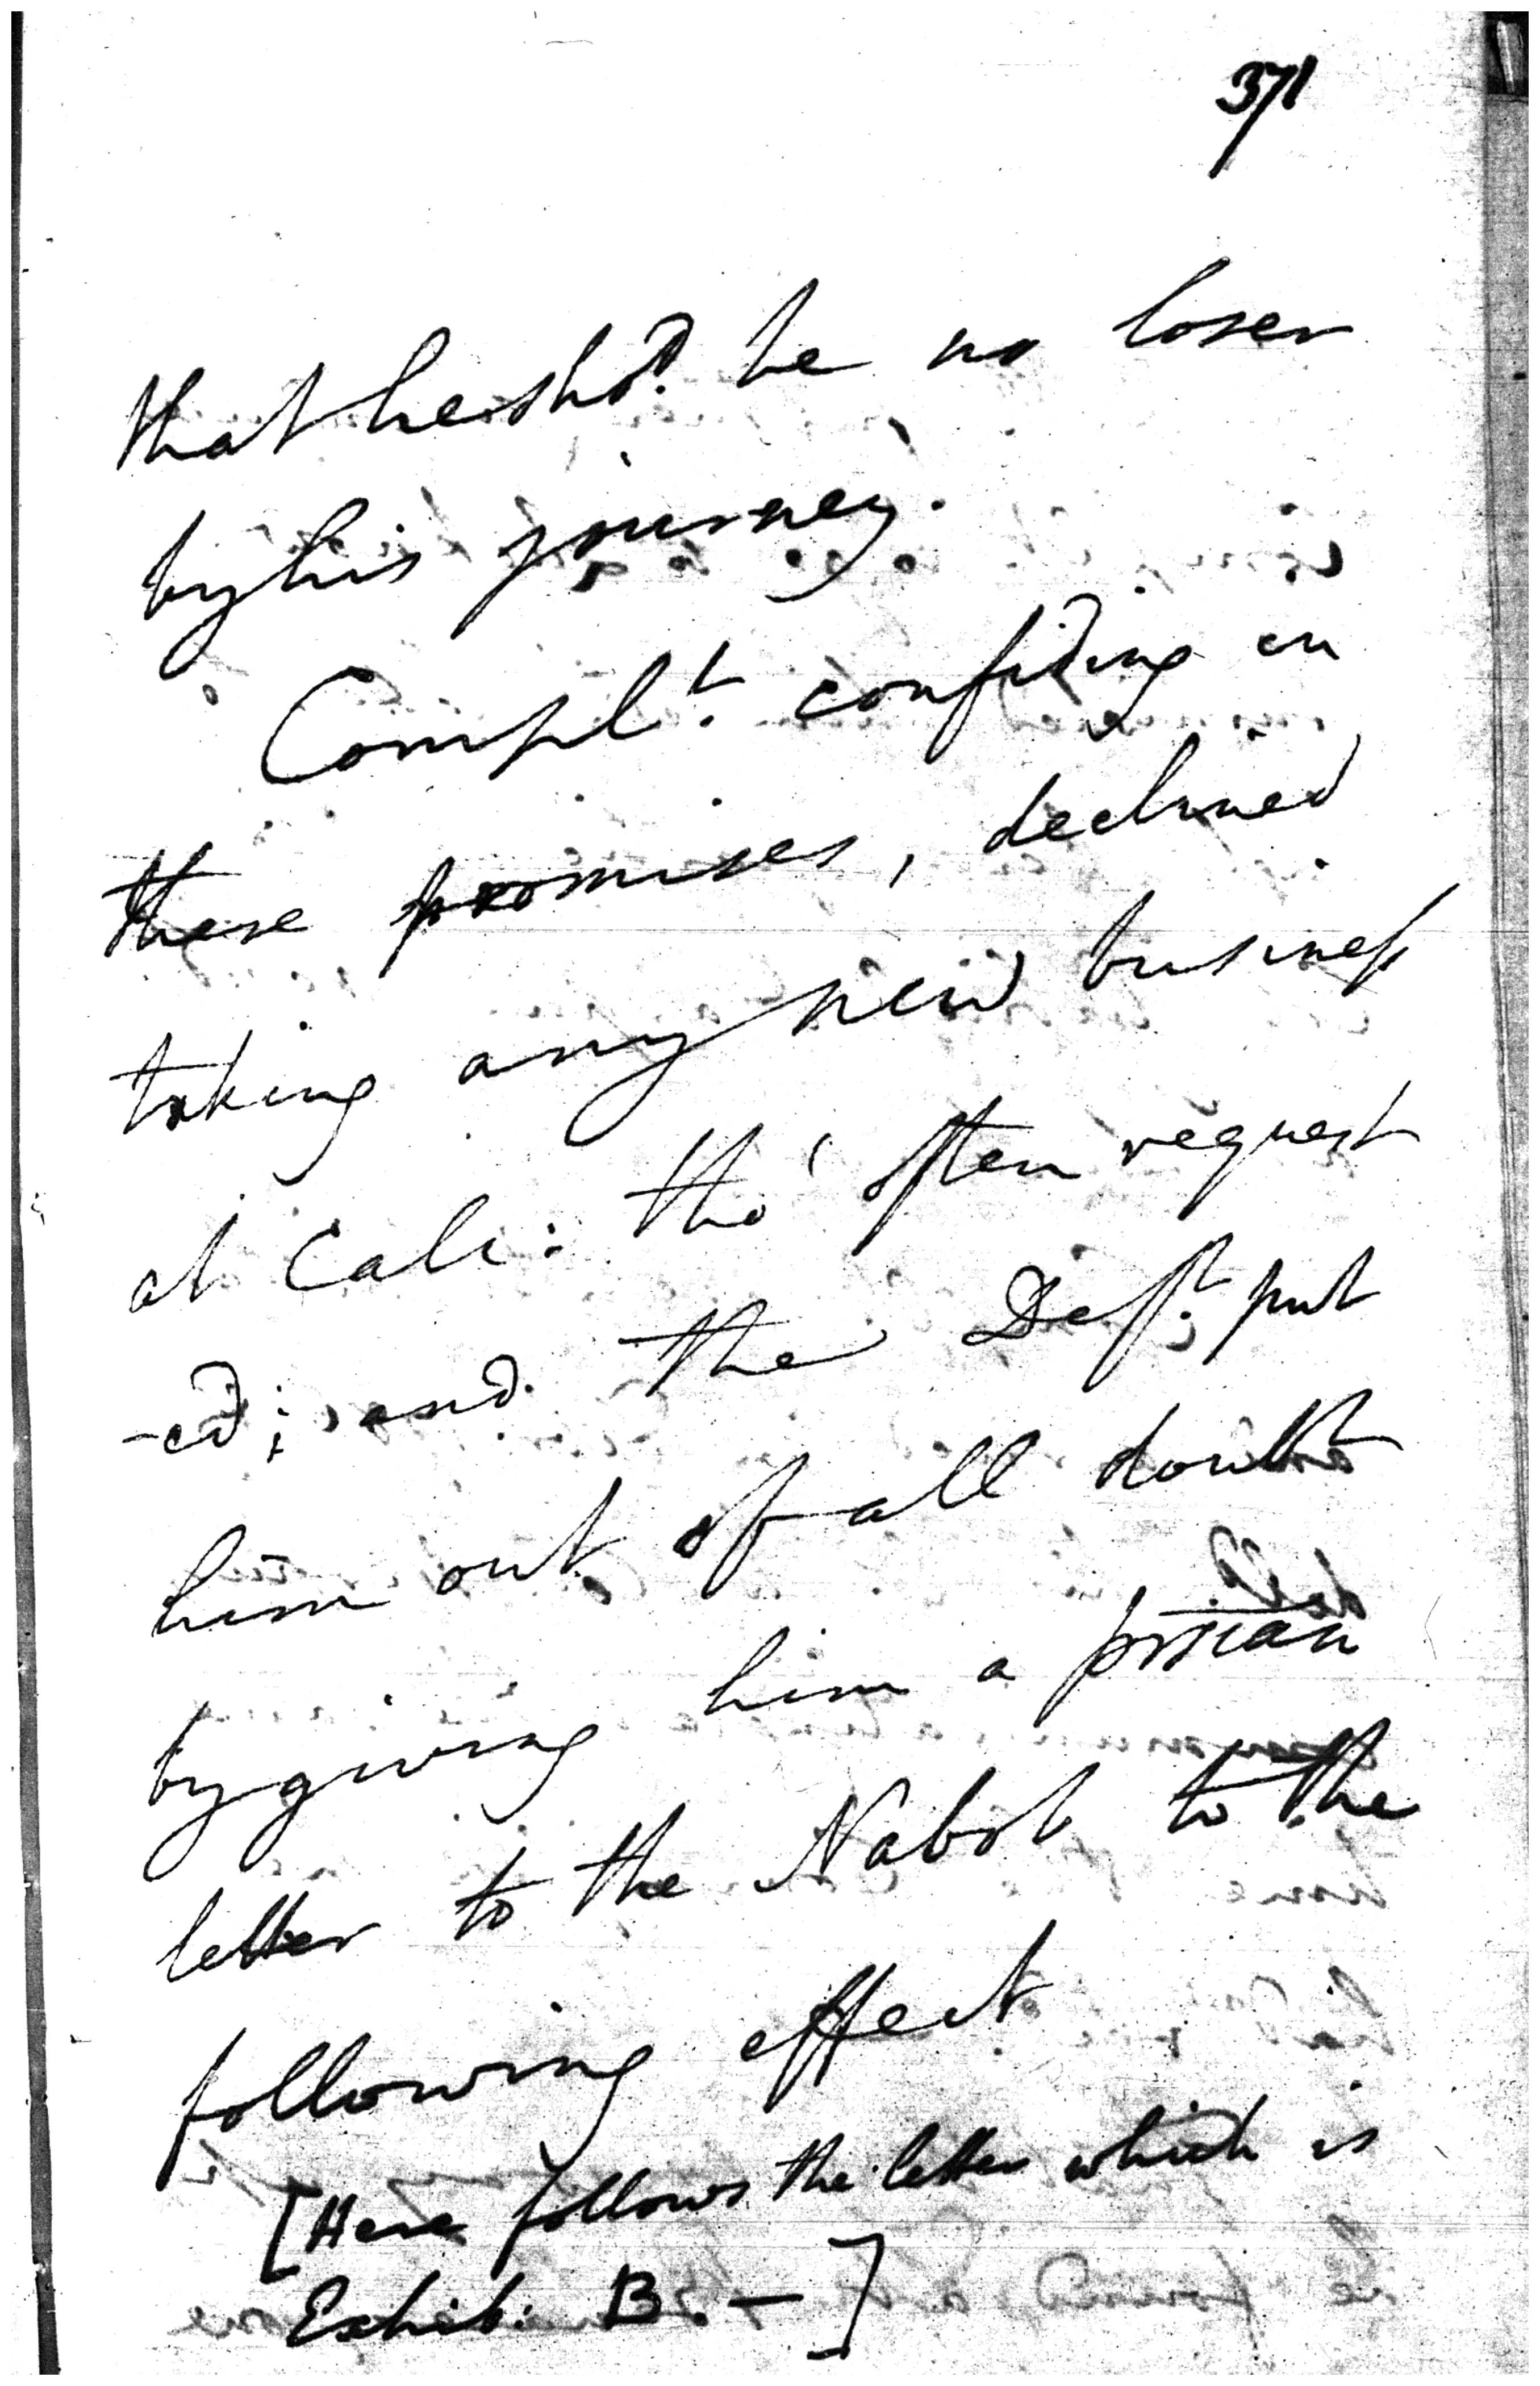 371
that he sho.d be no loser
by his journey.
Compl.t confiding in
these promises, declined
taking any new business
at Calc: tho' often request
-ed; and the Def.t put
him out of all doubt
by giving him a psian
letter to the Nabob to the
following effect
[Here follows the letter which is
Exhib: B. — ]